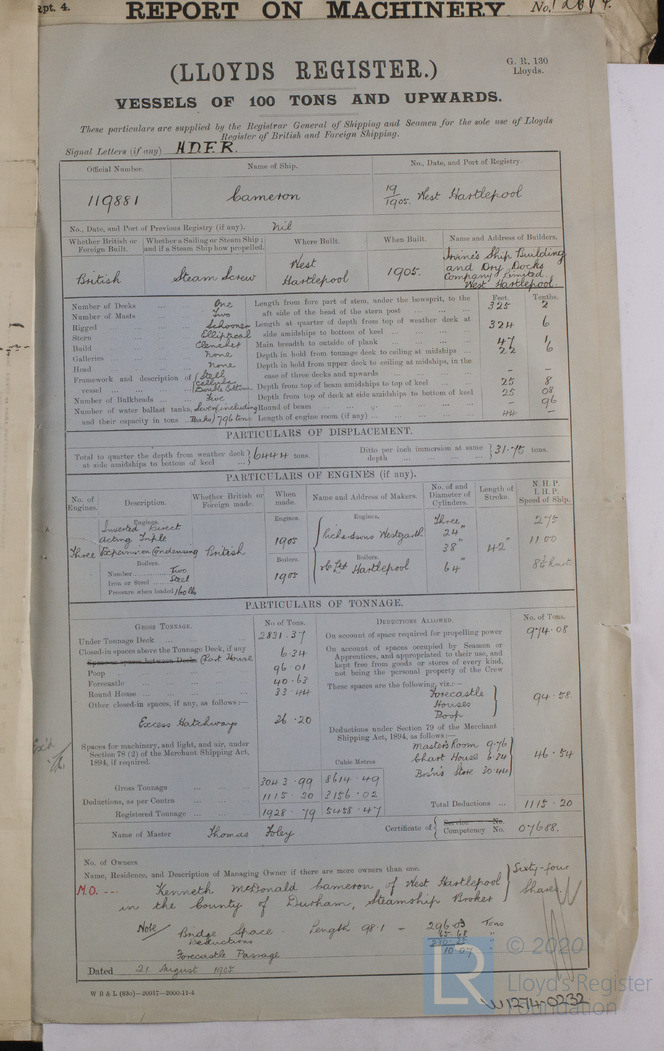 Rpt. 4. REPORT ON MACHINERY No.
G. R. 130
Lloyds.
(LLOYDS REGISTER.)
VESSELS OF 100 TONS AND UPWARDS.
These particulars are supplied by the Registrar General of Shipping and Seamen for the sole use of Lloyds
Register of British and Foreign Shipping.
Signal Letters (if any) H.D.F.R.
Official Number. Name of Ship. No., Date, and Port of Registry.
119881 Cameron 19/1905. West Hartlepool
No., Date, and Port of Previous Registry (if any). Nil
Whether British or Foreign Built. Whether a Sailing or Steam Ship; and if a Steam Ship how propelled. Where Built. When Built. Name and Address of Builders.
British Steam Screw West Hartlepool 1905. Irvine's Ship Building and Dry Docks Company Limited West Hartlepool.
Feet. Tenths.
Number of Decks One Length from fore part of stem, under the bowsprit, to the aft side of the head of the stern post 325 2
Number of Masts Two
Rigged Schooner Length at quarter of depth from top of weather deck at side amidships to bottom of keel 324 6
Stern Elliptical
Build Clencher Main breadth to outside of plank 47 1
Galleries None Depth in hold from tonnage deck to ceiling at midships 22 6
Head None Depth in hold from upper deck to ceiling at midships, in the case of three decks and upwards - -
Framework and description of vessel Steel Cellular Double Bottom Depth from top of beam amidships to top of keel 25 8
Number of Bulkheads Five Depth from top of deck at side amidships to bottom of keel 25 08
Number of water ballast tanks, Seven (including Round of beam - 96
and their capacity in tons Peaks) 796 tons Length of engine room (if any) 44 -
PARTICULARS OF DISPLACEMENT.
Total to quarter the depth from weather deck at side amidships to bottom of keel 6444 tons. Ditto per inch immersion at same depth 31.75 tons.
PARTICULARS OF ENGINES (if any).
No. of Engines. Description. Whether British or Foreign made. When made. Name and Address of Makers. No. of and Diameter of Cylinders. Length of Stroke. N. H. P. I. H. P. Speed of Ship.
Engines. Engines. Engines.
Three Inverted Direct acting Triple Expansion Condensing British 1905 Richardsons Westgarth Three 24" 38" 64" 42" 275 1100 8½ knots
Boilers. Boilers. Boilers.
Number Two
Iron or Steel Steel 1905 Hartlepool
Pressure when loaded 160 lbs
PARTICULARS OF TONNAGE.
GROSS TONNAGE. No of Tons. DEDUCTIONS ALLOWED. No. of Tons.
Under Tonnage Deck 2831.37 On account of space required for propelling power 974.08
Closed-in spaces above the Tonnage Deck, if any
Space or spaces between Decks Chart House 6.34 On account of spaces occupied by Seamen or Apprentices, and appropriated to their use, and kept free from goods or stores of every kind, not being the personal property of the Crew
Poop 96.01
Forecastle 40.63
Round House 33.44 These spaces are the following, viz:—
Other closed-in spaces, if any, as follows:— Forecastle Houses Poop 94.58.
Excess Hatchways 26.20
Deductions under Section 79 of the Merchant Shipping Act, 1894, as follows:—
Spaces for machinery, and light, and air, under Section 78 (2) of the Merchant Shipping Act, 1894, if required. Master's Room 9.76 Chart House 6.34 Bosn's Store 30.44 46.54
Cubic Metres
Gross Tonnage 3043.99 8614.49
Deductions, as per Contra 1115.20 3156.02 Total Deductions 1115.20
Registered Tonnage 1928.79 5458.47
Name of Master Thomas Foley Certificate of Service No. Competency No. 07688.
No. of Owners
Name, Residence, and Description of Managing Owner if there are more owners than one.
M.O. --- Kenneth McDonald Cameron of West Hartlepool
in the County of Durham, Steamship Broker Sixty-four Shares
Note/ Bridge Space - Length 98.1 - 296.03 Tons
Deductions 65.68 "
Forecastle Passage 10.07 "
Dated 21 August 1905
W B & L (88o)—20057—2000-11-4
LR © 2020
Lloyd's Register
Foundation
W1274-0232